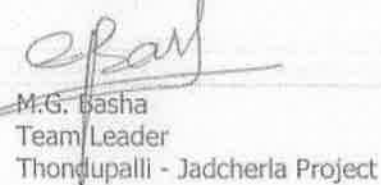 M.G. Basha
Team Leader
Thondupalli - Jadcherla Project